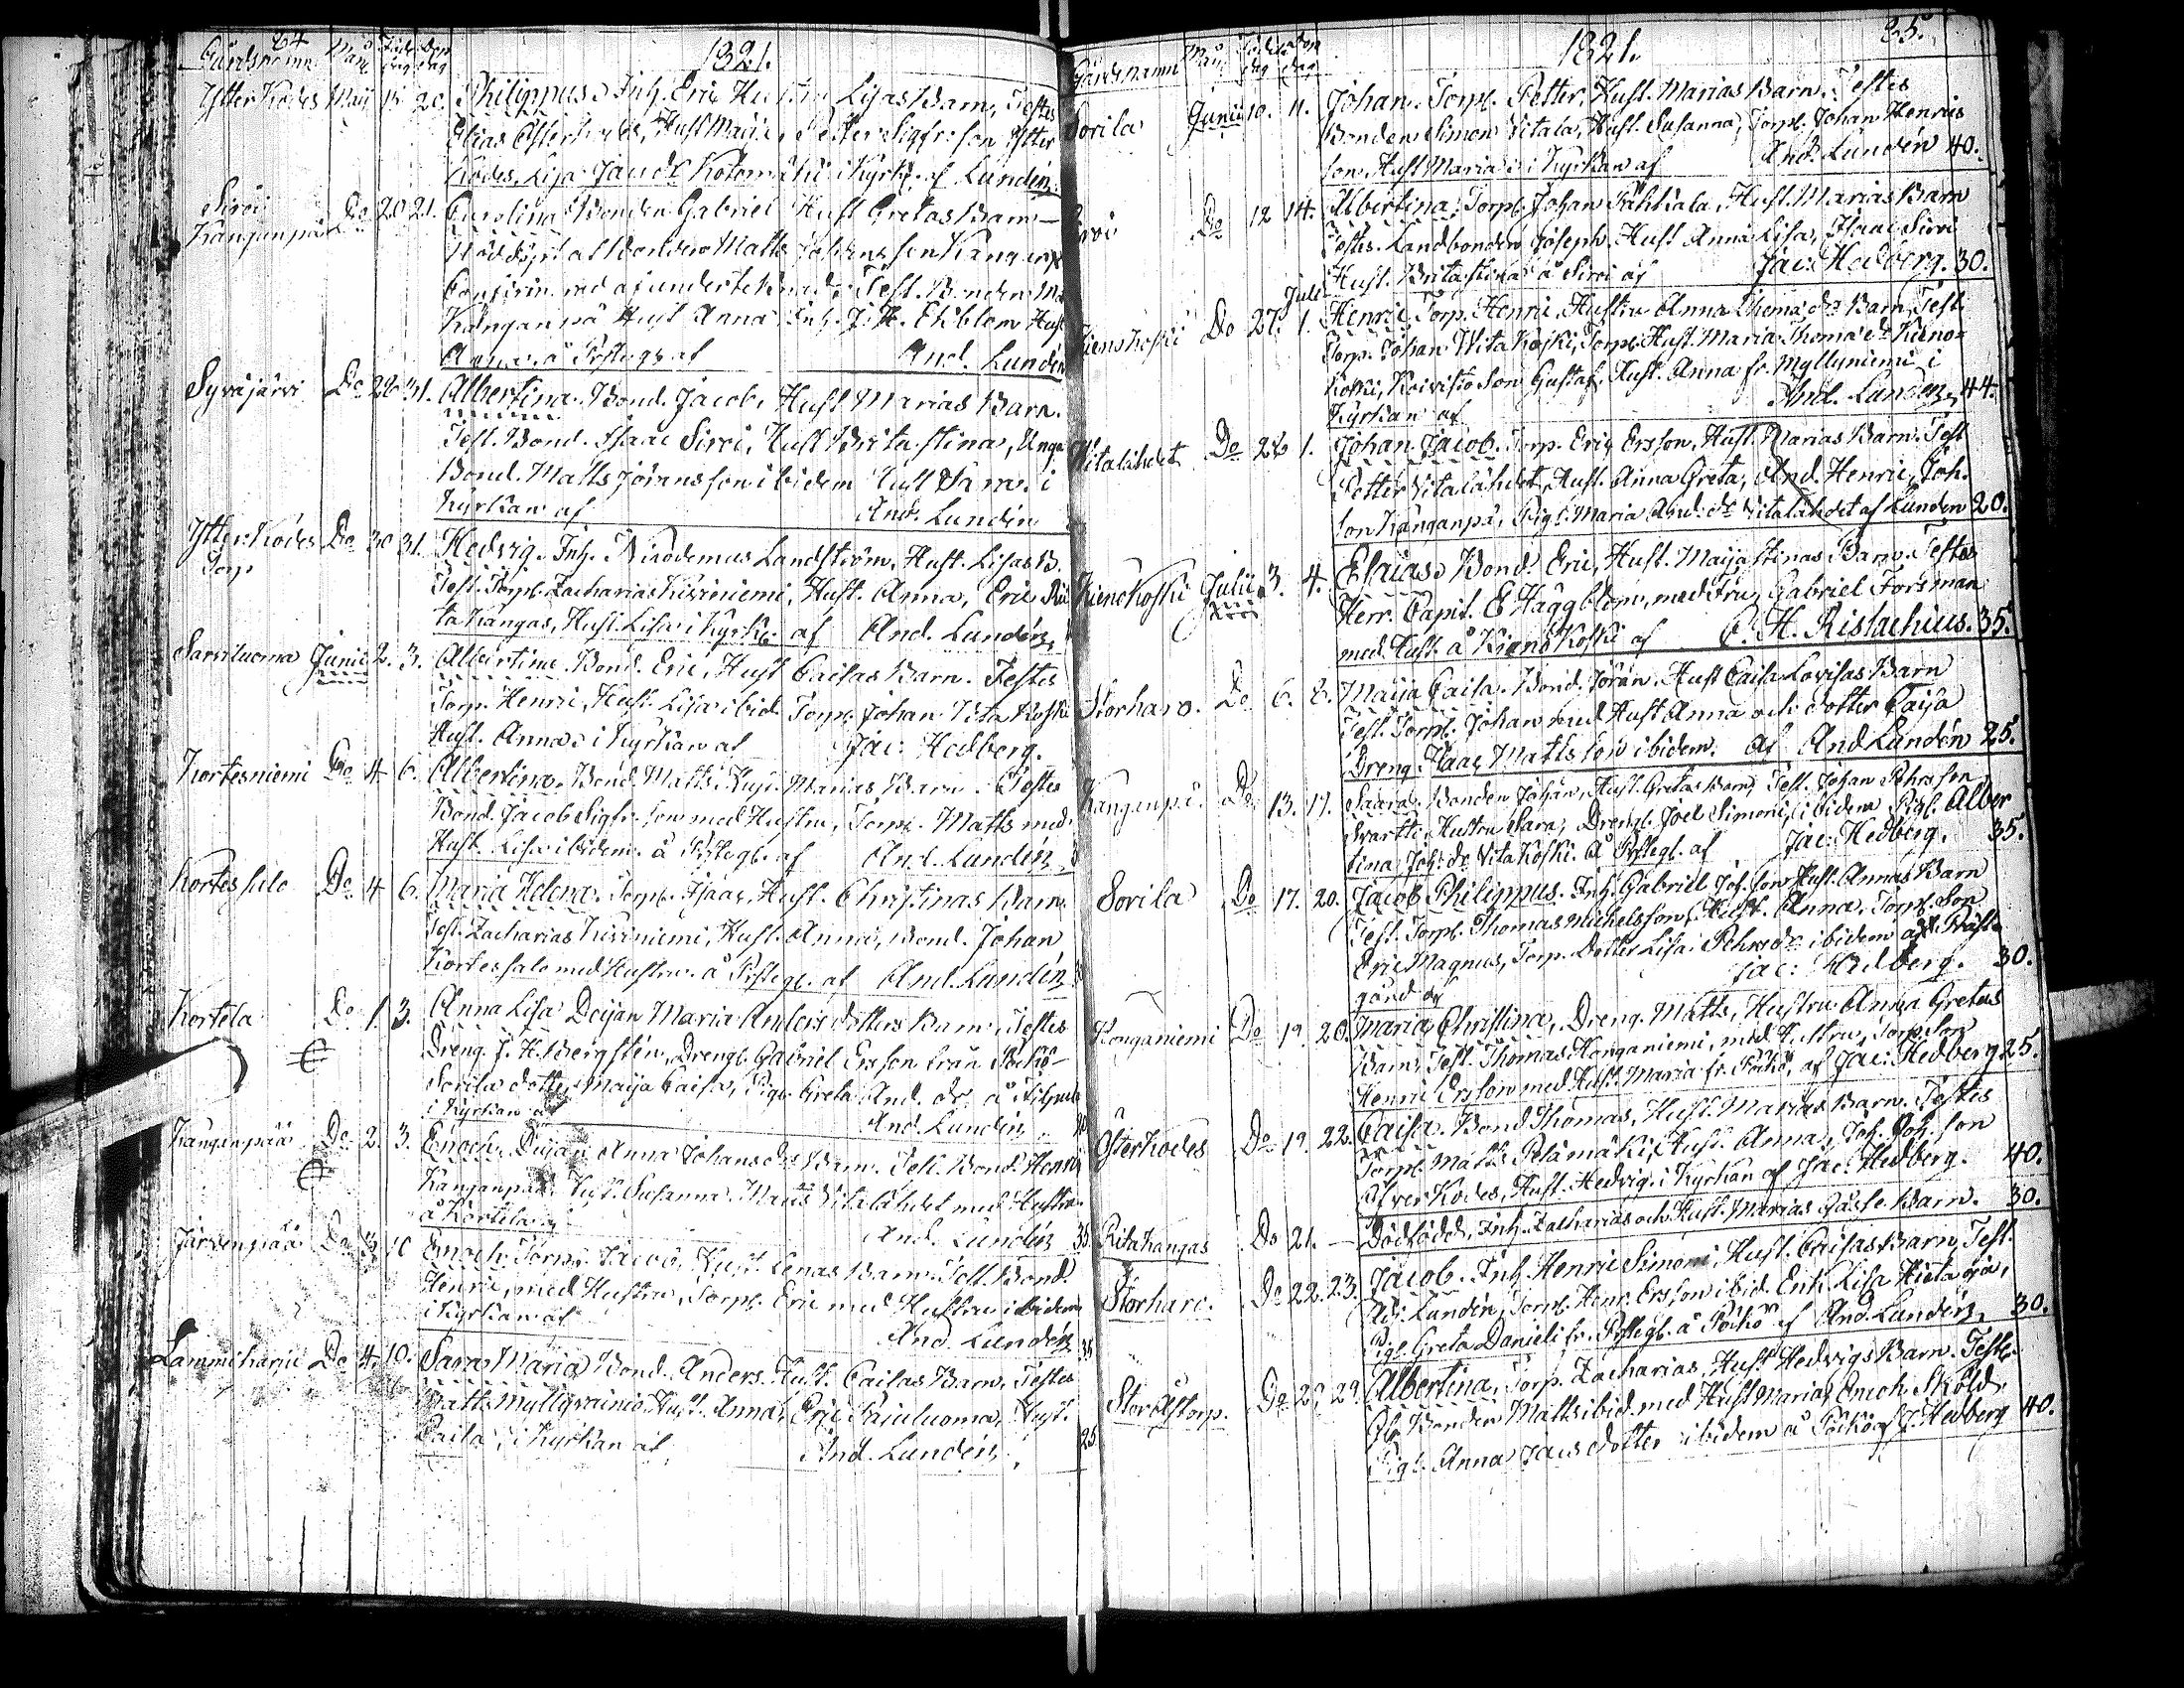 84
Gårdsnamn Mån. Föd. dag Dop dag 1821.
Ytter Kodes Maij 20. Philippus, Inh. Eric Hustru Lisas Barn, Testes
Elias Österkodes, Hust Maria, Petter Sigfr: son Ytter
Kodes, Lisa Jacobs Kotomäki i Kyrk. af Lundén.
Siroi
Kanganpä Do 20 21. Carolina Bonden Gabriel Hust Gretas Barn
Nöddöpt af Bonden Matts Johansson Kangenp
Confirmerad af underteknad. Test. Bonden Ma
Kanganpä Hust Anna Inh. J. H. Ekblom Hust
Anna, å Prstegr af And. Lundén
Syväjärvi Do 28 31. Albertina. Bond. Jacob, Hust Marias Barn.
Test. Bond. Isaac Siroi, Hust Brita Stina, Unga
Bond. Matts Jöransson ibidem Hust Sara i
Kyrkan af And. Lundén
Ytter Kodes Do 30 31. Hedvig. Inh. Nicodemus Landström, Hust. Lisas B.
Torp
Test. Torp. Zacharias Kiviniemi, Hust. Anna, Eric Ri
takangas, Hust. Lisa i Kyrk. af And. Lundén
Sarviluoma Junii 2. 3. Albertina. Bond. Eric, Hust Caisas Barn. Testes
Torp. Henric, Hust. Lisa ibid. Torp. Johan Vitakoski
Hust. Anna i Kyrkan af Jac: Hedberg.
Kortesniemi Do 4 6. Albertina. Bond. Matts, Hust Marias Barn. Testes
Bond. Jacob Sigfr: son med Hustru, Torp. Matts med
Hust. Lisa ibidem å Prstegb. af And. Lundén
Kortessalo Do 4 6. Maria Helena. Torp. Isaac, Hust. Christinas Barn
Test. Zacharias Kiviniemi, Hust. Anna, Bond. Johan
Kortessalo med Hustru å Prstegb. af And. Lundén
Kortela Do 1 3. Anna Lisa Deijan Maria Anders dotters Barn. Testes
Dreng. J. H. Bergstén, Drengb. Gabriel Ersson från Pöckö
Sorila dotter Maija Caisa, Pig. Greta And. dr å
i Kyrkan af And. Lundén
Kangenpää Do 2. 3. Enoch, Deijan Anna Johans dr Barn. Test. Bond. Henric
Kanganpää Hust. Susanna Matts Vitalähdet med Hustru
å Kortela af And. Lundén 35
Järvenpää Do 3 10 Enoch. Torp. Jacob, Hust Lenas Barn. Test. Bond.
Henric, med Hustru, Torp. Eric med Hustru ibidem
i Kyrkan af And. Lundén 35
Lammiharju Do 4. 10. Sara Maria, Bond. Anders. Hust. Caisas Barn, Testes
Matts Myllyrainio Hust. Anna, Eric Hust.
Caisa, i Kyrkan af And. Lundén, 25
85.
Gårdsnamn Mån Föd. dag Dop dag 1821.
Sorila Junii 10. 11. Johan. Torp. Petter, Hust. Marias Barn. Testes
Bonden Simon Vitala, Hust. Susanna, Torp. Johan Henrics
son, Hust Maria i Kyrkan af And. Lundén 40.
Siroi Do 12 14. Albertina. Torp. Johan Hust. Marias Barn
Testes. Landbonden Joseph. Hust Anna Lisa, Isaac Siroi
Hust. Brita Stina å Siroi af Jac: Hedberg. 30.
Kienokoski Do 27. Julii 1. Henric, Torp. Henric, Hustru Anna Thoma dr Barn, Test
Torp. Johan Vitakoski, Torp. Hust. Maria Thoma dr Kieno=
koski, Koivisto Son Gustaf. Hust. Anna fr. Myllyniemi i
Kyrkan af And. Lundén 44.
Vitalähdet Do 28 1. Johan Jacob. Torp. Eric Ersson, Hust. Marias Barn. Test
Petter Vitalähdet, Hust. Anna Greta, And. Henric, Joh.
son Känganpä, Pig. Maria And: dr Vitalähdet af Lundén 20.
Kienokoski Julii 3. 4. Esaias. Bond. Eric, Hust. Maija Stinas Barn. Testes
Herr. Capit. E Häggblom, med Fru, Gabriel Forsman
med Hust. å Kienokoski af C. H. Rislachius. 35.
Storharo. Do 6. 8. Maija Caisa. Bond. Jöran. Hust Caisa Lovisas Barn
Test. Torp. Johan med Hust Anna och dotter Caija
Dreng. Isaac Mattsson ibidem. Af And Lundén 25.
Kanganpä. Do 13. 17. Saara. Bonden Johan, Hust. Gretas Barn, Test. Johan Pehrsson
Svartti, Hustru Sara, Drengb. Joel Simoni, ibidem Pigb. Alber
tina, Joh: dr Vitakoski. å Prstegb. af Jac: Hedberg. 35.
Sorila Do 17. 20. Jacob Philippus. Inh. Gabriel Joh. son Hust. Annas Barn
Test. Torp. Thomas Michelsson, Hust. Anna. Torp. Son
Eric Magnus, Torp. Dotter Lisa Pehrs dr ibidem å Präste
gård af Jac: Hedberg. 30.
Honganiemi Do 19. 20. Maria Christina, Dreng. Matts, Hustru Anna Gretas
Barn, Test. Thomas Honganiemi, med Hustru, Torp. Son
Henric Ersson med Hust. Maria fr. Pöckö, af Jac: Hedberg 25.
Österkodes Do 19. 22. Caisa. Bond Thomas, Hust. Marias Barn. Testes
Torp. Matts Petämäki, Hust. Anna, Joh. Joh. son
Öfver Kodes, Hust. Hedvig. i Kyrkan af Jac: Hedberg. 40.
Ritakangas Do 21. — Dödfödd, Inh. Zacharias och Hust. Marias Gosse Barn. 30.
Storharo. Do 22. 23. Jacob. Inh. Henric Simoni, Hust. Caisas Barn, Test.
Adj. Lundén, Torp. Henr. Ersson ibid. Enk. Lisa Hietaoja,
Pig. Greta Danieli fr. Prstegb. å Pöckö af And. Lundén, 30.
Storåstorp. Do 29. Albertina, Torp. Zacharias, Hust Hedvigs Barn. Test.
Bonden Matts ibid. med Hust Maria, Enoch Sköld,
Pig. Anna Jacs dotter ibidem å Pöckö af J. Hedberg 40.